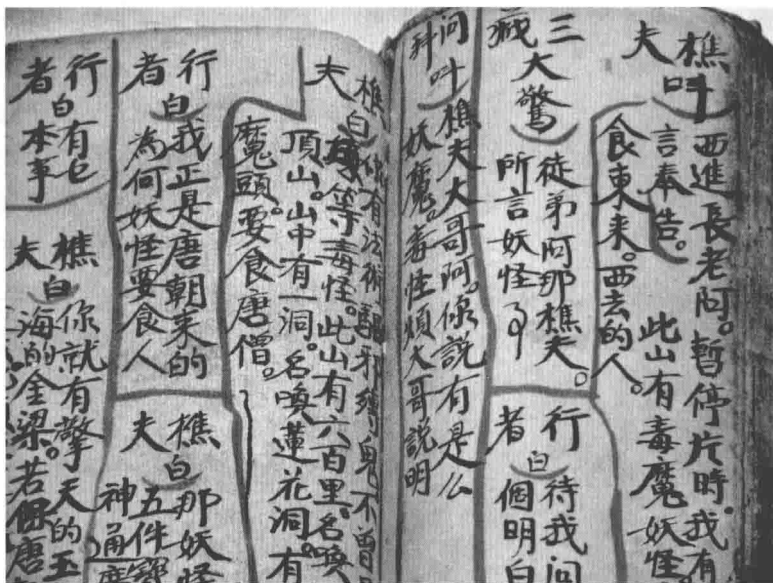 樵夫叫西進長老阿。暫停片時。我有
言奉告。此山有毒魔妖怪
食東来。西去的人。
三藏大驚徒弟阿那樵夫。
所言妖怪了
行者白待我问
個明白
问科叫樵夫大哥阿。你説有是么
妖魔。毒怪煩大哥説明
樵夫白你有法術驅邪縛鬼不曾
等毒怪。此山有六百里。名喚
頂山。山中有一洞。名喚蓮花洞。有
魔頭。要食唐僧。
行者白我正是唐朝来的
為何妖怪要食人
樵夫白那妖怪
五件寶
神通廣
行者白有乜
本事
樵夫白你就有擎天的玉
海的金梁。若保唐